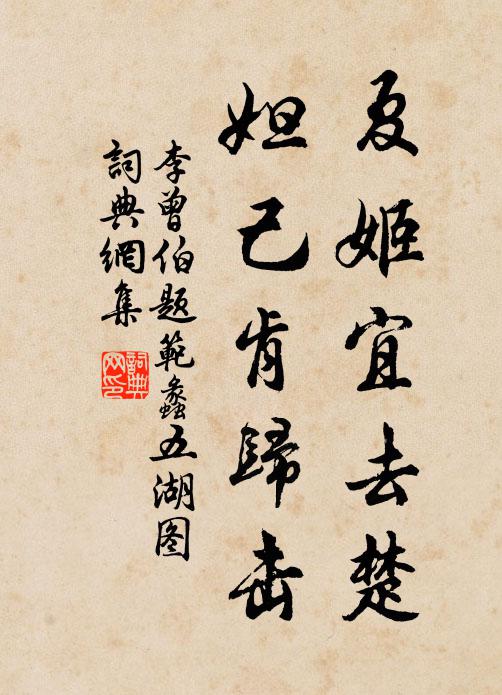 夏姬宜去楚
妲己肯歸
李曾伯題範蠡五湖图
詞典網集
詞典网印